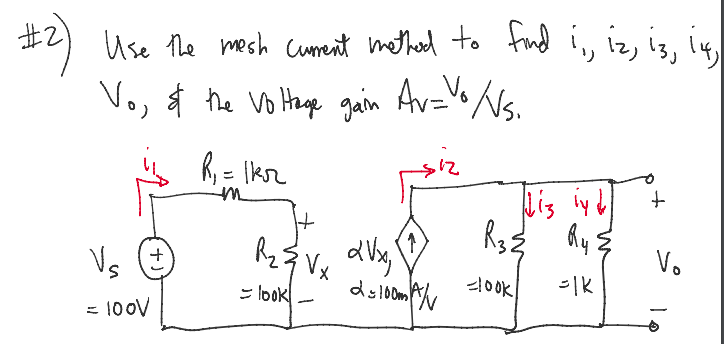 #2) Use the mesh current method to find i₁, i₂, i₃, i₄,
Vo, & the Voltage gain Av=Vo/Vs.
i₁
R₁ = 1kΩ
i₂
+
i₃
i₄
+
Vs
+
R₂
Vx
αVx,
R₃
R₄
Vo
= 100V
= 100K
−
α=100mA/V
=100K
=1K
−